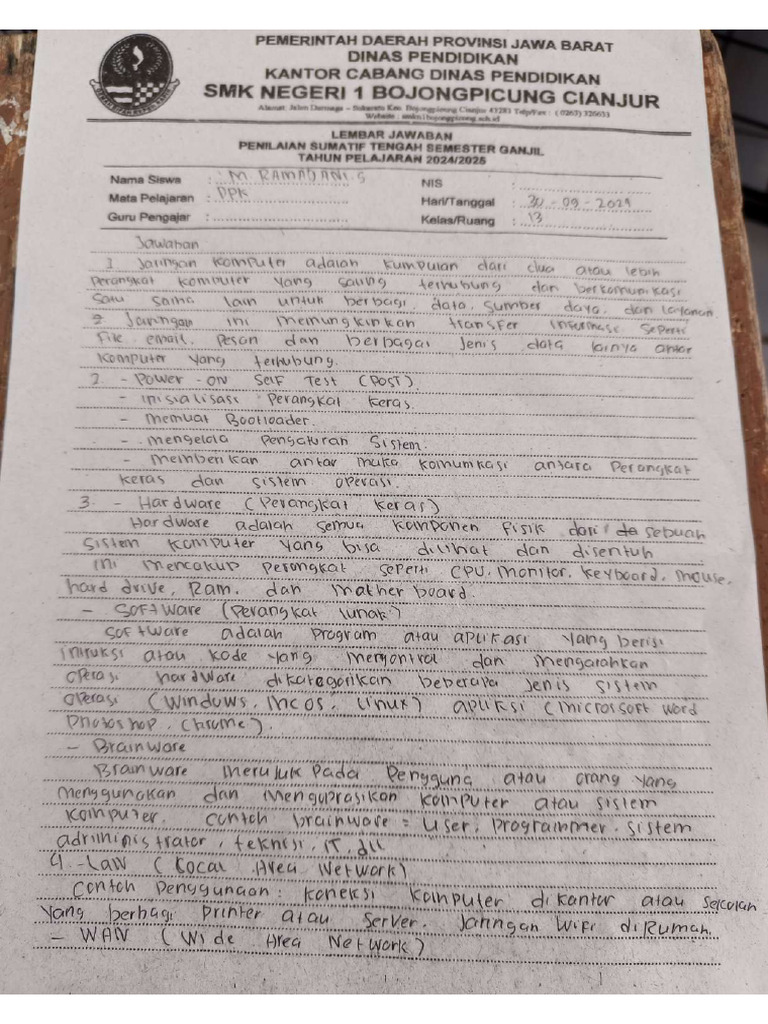 PEMERINTAH DAERAH PROVINSI JAWA BARAT
DINAS PENDIDIKAN
KANTOR CABANG DINAS PENDIDIKAN
SMK NEGERI 1 BOJONGPICUNG CIANJUR
LEMBAR JAWABAN
PENILAIAN SUMATIF TENGAH SEMESTER GANJIL
TAHUN PELAJARAN 2024/2025
Nama Siswa : M. RAMADANI.S
NIS :
Mata Pelajaran : PPK
Hari/Tanggal : 30 - 09 - 2024
Guru Pengajar :
Kelas/Ruang : 13
Jawaban
1 Jaringan komputer adalah kumpulan dari dua atau lebih
Perangkat komputer yang saling terhubung dan berkomunikasi
Satu sama lain untuk berbagi, data, sumber daya, dan layanan
2 Jaringan ini memungkinkan transfer informasi seperti
file, email, pesan dan berbagai jenis data lainya antar
Komputer yang terhubung.
2. - Power - ON Self Test (POST).
- inisialisasi Perangkat keras.
- memuat Bootloader.
- mengelola Pengaturan Sistem.
- memberikan antar muka komunikasi antara Perangkat
keras dan sistem operasi.
3. - Hardware (Perangkat keras)
Hardware adalah semua komponen fisik dari sebuah
Sistem komputer yang bisa dilihat dan disentuh
ini mencakup perangkat seperti CPU, monitor, keyboard, mouse,
hard drive, Ram, dan mather board.
- Software (Perangkat lunak)
Software adalah program atau aplikasi yang berisi
intruksi atau kode yang mengontrol dan mengarahkan
operasi hardware dikategorikan beberapa jenis sistem
operasi (Windows, mcos, Linux) apliksi (microssoft word
Photoshop, Chrome).
- Brainware
Brainware merujuk Pada Penggung atau orang yang
menggunakan dan Menguprasikan komputer atau sistem
komputer. contoh brainware = User, Programmer, sistem
administrator, teknisi, IT, dll
4. - LAN (Local Area Network)
Contoh Penggunaan: koneksi komputer dikantor atau sekolah
yang berbagi printer atau server. Jaringan WiFi diRumah.
- WAN (Wide Area Network)